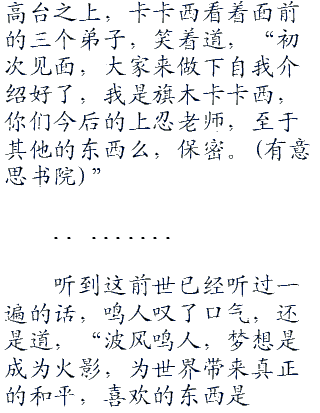 高台之上，卡卡西看着面前
的三个弟子，笑着道，“初
次见面，大家来做下自我介
绍好了，我是旗木卡卡西，
你们今后的上忍老师，至于
其他的东西么，保密。(有意
思书院)”
·· ·······
听到这前世已经听过一
遍的话，鸣人叹了口气，还
是道，“波风鸣人，梦想是
成为火影，为世界带来真正
的和平，喜欢的东西是